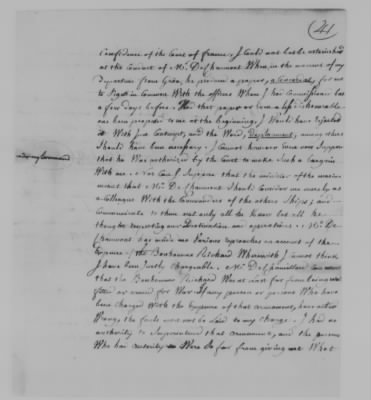 (24)
Confidence of the Court of france. I Could not but be astonished
at the Conduct of Mr. De Chaumont When, in the moment of my
Departure from Groa, he produced a paper, a Concordat, for me
to Sign in Common With the officers Whom I had Commissioned but
a few days before. Had that paper or even a less dishonorable
one been proposed to me at the beginning, I Would have rejected
it With just Contempt, and the Word, Deplacement, among others
Should have been necessary. I Cannot however even now Suppose
that he Was authorized by the Court to make Such a bargain
With me. Nor Can I Suppose that the minister of the marine
meant that Mr. De Chaumont Should Consider me merely as
a Colleague With the Commanders of the others Ships, and
Communicate to them not only all he knew but all he
thought respecting our Destination and operations. Mr. De
Chaumont has made me Various reproaches on account of the
Expence of the Bonhomme Richard Wherewith I Cannot think
I have been justly Chargeable. Mr. De Chamillard
that the Bonhomme Richard Was at last far from being well
fitted or armed for War. If any person or persons Who have
been Charged With the Expence of that armament, have acted
Wrong, the fault must not be laid to my Charge. I had no
authority to Superintend that armament, and the persons
Who had authority Were So far from giving me What
under my Command